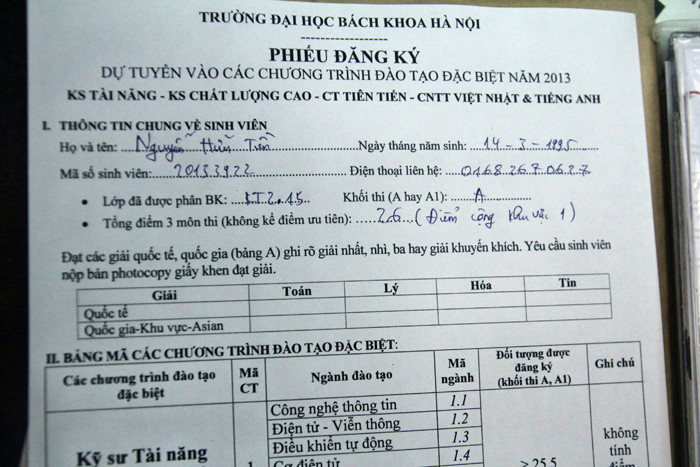 TRƯỜNG ĐẠI HỌC BÁCH KHOA HÀ NỘI
PHIẾU ĐĂNG KÝ
DỰ TUYỂN VÀO CÁC CHƯƠNG TRÌNH ĐÀO TẠO ĐẶC BIỆT NĂM 2013
KS TÀI NĂNG - KS CHẤT LƯỢNG CAO - CT TIÊN TIẾN - CNTT VIỆT NHẬT & TIẾNG ANH
I. THÔNG TIN CHUNG VỀ SINH VIÊN
Họ và tên: Nguyễn Hữu Tiến Ngày tháng năm sinh: 14-3-1995
Mã số sinh viên: 20133922 Điện thoại liên hệ: 01682670627
• Lớp đã được phân BK: KT2.15 Khối thi (A hay A1): A
• Tổng điểm 3 môn thi (không kể điểm ưu tiên): 26 (Điểm cộng khu vực 1)
Đạt các giải quốc tế, quốc gia (bảng A) ghi rõ giải nhất, nhì, ba hay giải khuyến khích. Yêu cầu sinh viên
nộp bản photocopy giấy khen đạt giải.
Giải Toán Lý Hóa Tin
Quốc tế
Quốc gia-Khu vực-Asian
II. BẢNG MÃ CÁC CHƯƠNG TRÌNH ĐÀO TẠO ĐẶC BIỆT:
Các chương trình đào tạo đặc biệt Mã CT Ngành đào tạo Mã ngành Đối tượng được đăng ký (khối thi A, A1) Ghi chú
Kỹ sư Tài năng 1 Công nghệ thông tin 1.1
Điện tử - Viễn thông 1.2
Điều khiển tự động 1.3 không
Cơ điện tử 1.4 ≥25,5 tính
điểm